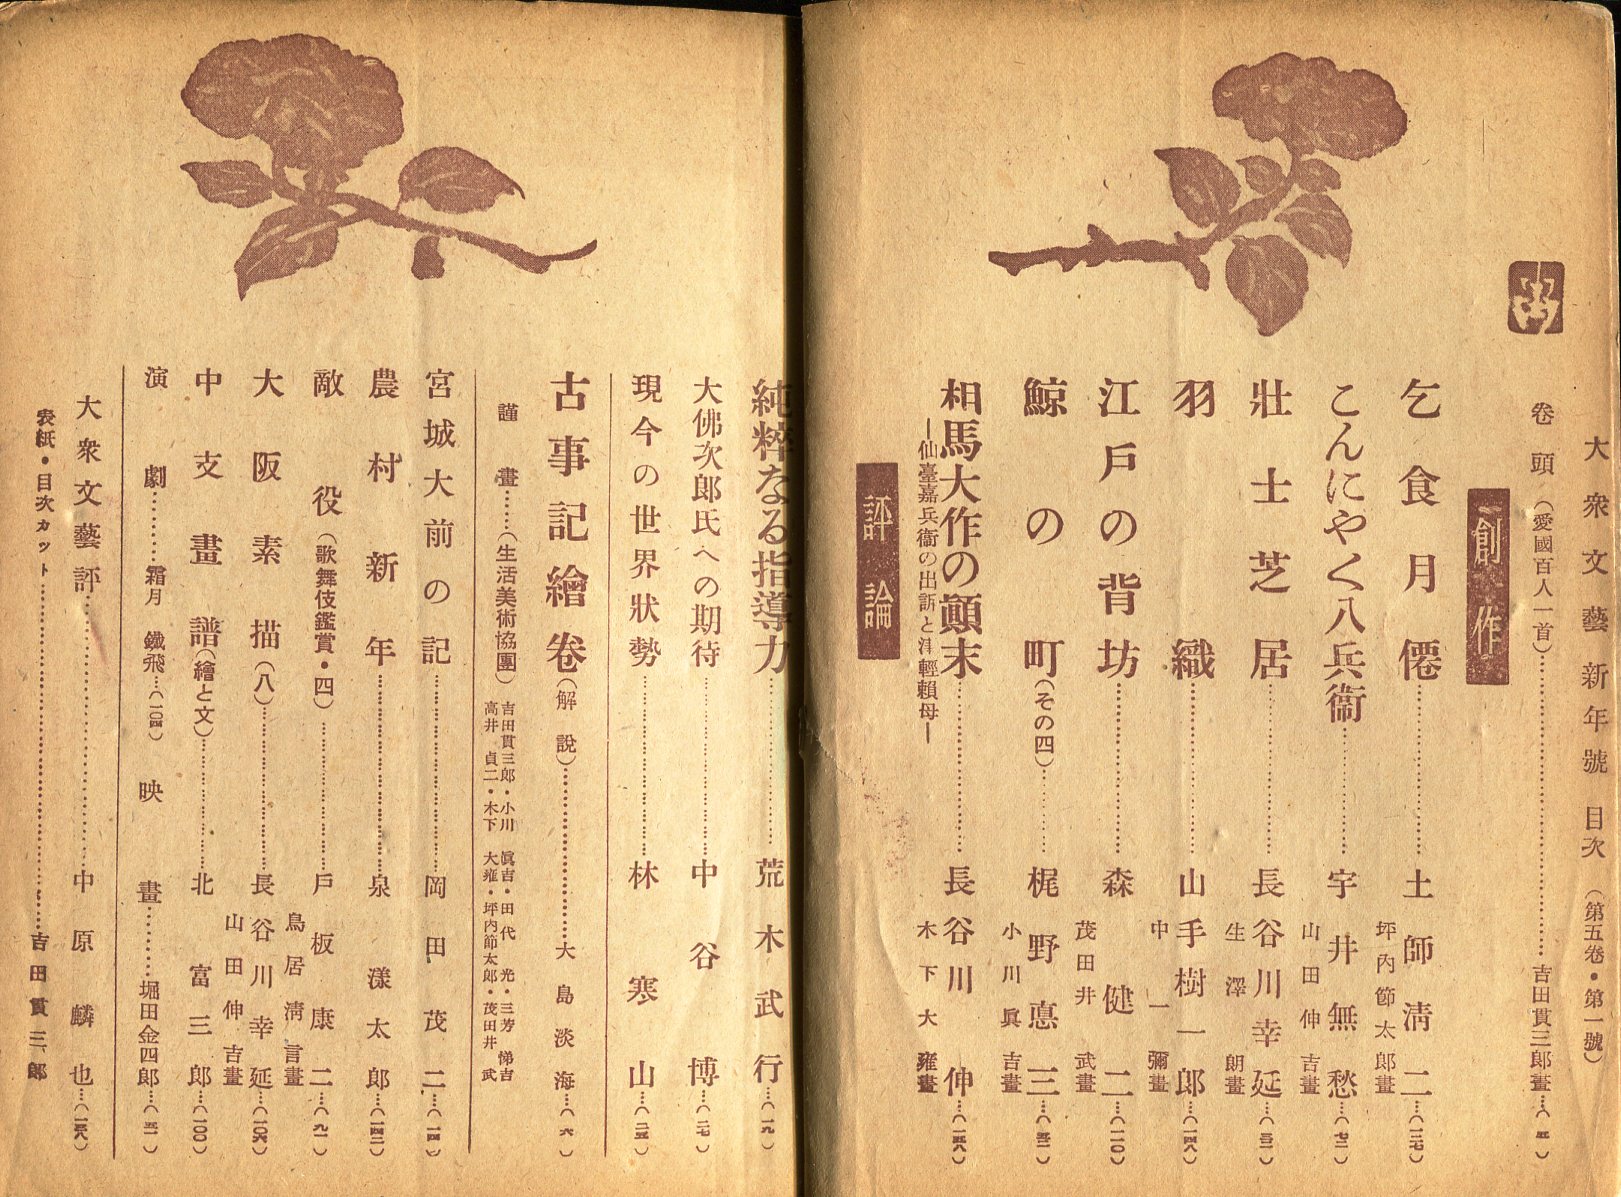 大衆文藝新年號 目次 (第五卷・第一號)
卷頭(愛國百人一首)…………吉田貫三郎畫…(五)
創作
乞食月僊…………土師淸二…(一三七)
坪內節太郎畫
こんにやく八兵衞…………宇井無愁…(七二)
山田伸吉畫
壯士芝居…………長谷川幸延…(三二)
生澤朗畫
羽織…………山手樹一郎…(一四八)
中一彌畫
江戸の背坊…………森健二…(一一〇)
茂田井武畫
鯨の町(その四)…………梶野悳三…(五二)
小川眞吉畫
相馬大作の顚末…………長谷川伸…(一五八)
―仙臺嘉兵衞の出訴と津輕賴母―
木下大雍畫
評論
純粹なる指導力…………荒木武行…(一九)
大佛次郎氏への期待…………中谷博…(二七)
現今の世界狀勢…………林寒山…(二三)
古事記繪卷(解說)…………大島淡海…(六)
謹畫……(生活美術協團)
吉田貫三郎・小川眞吉・田代光・三芳悌吉
高井貞二・木下大雍・坪內節太郎・茂田井武
宮城大前の記…………岡田茂二…(一四)
農村新年…………泉漾太郎…(一四二)
敵役(歌舞伎鑑賞・四)…………戸板康二…(九一)
鳥居淸言畫
大阪素描(八)…………長谷川幸延…(一〇六)
山田伸吉畫
中支畫譜(繪と文)…………北富三郎…(一〇〇)
演劇…………霜月鐵飛…(一〇四) 映畫…………堀田金四郎…(五一)
大衆文藝評…………中原麟也…(一二八)
表紙・目次カット…………吉田貫三郎